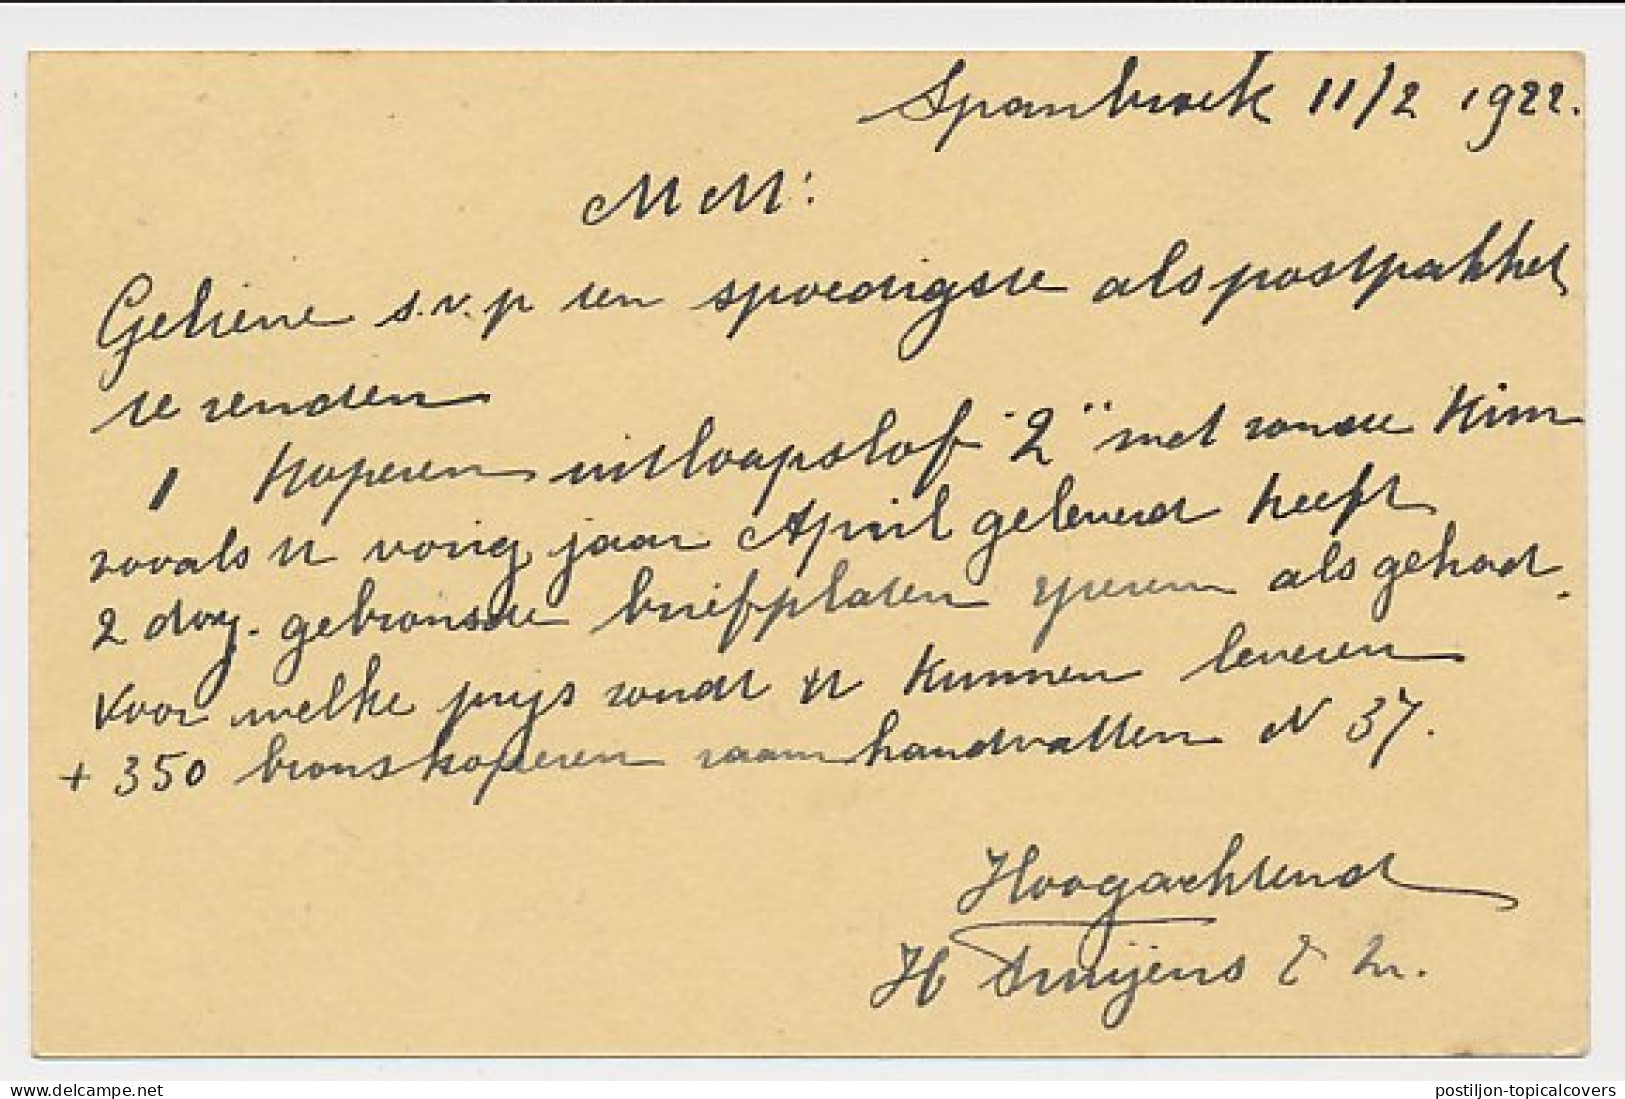 Spanbroek 11/2 1922.
M M:
Geliene s.v.p ten spoedigste als postpakket
te zenden
1 koperen uitloopslof "2" met ronde kim
zooals U vorig jaar April geleverd heeft
2 doz. gebronsde briefplaten ijzeren als gehad.
Voor welke prijs zoudt U kunnen leveren
+ 350 bronskoperen raamhandvatten N 37.
Hoogachtend
H Smijens & Zn.
postiljon-topicalcovers
www.delcampe.net